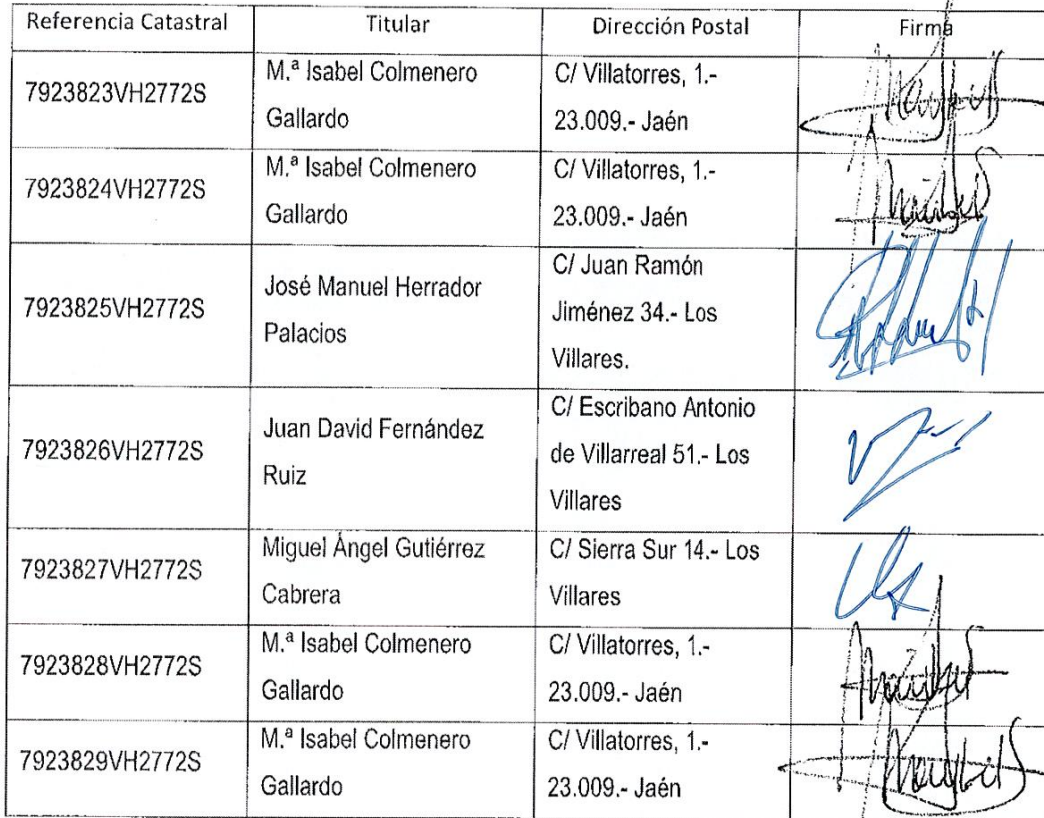 Referencia Catastral Titular Dirección Postal Firma
7923823VH2772S
M.ª Isabel Colmenero
Gallardo
C/ Villatorres, 1.-
23.009.- Jaén
7923824VH2772S
M.ª Isabel Colmenero
Gallardo
C/ Villatorres, 1.-
23.009.- Jaén
7923825VH2772S
José Manuel Herrador
Palacios
C/ Juan Ramón
Jiménez 34.- Los
Villares.
7923826VH2772S
Juan David Fernández
Ruiz
C/ Escribano Antonio
de Villarreal 51.- Los
Villares
7923827VH2772S
Miguel Ángel Gutiérrez
Cabrera
C/ Sierra Sur 14.- Los
Villares
7923828VH2772S
M.ª Isabel Colmenero
Gallardo
C/ Villatorres, 1.-
23.009.- Jaén
7923829VH2772S
M.ª Isabel Colmenero
Gallardo
C/ Villatorres, 1.-
23.009.- Jaén